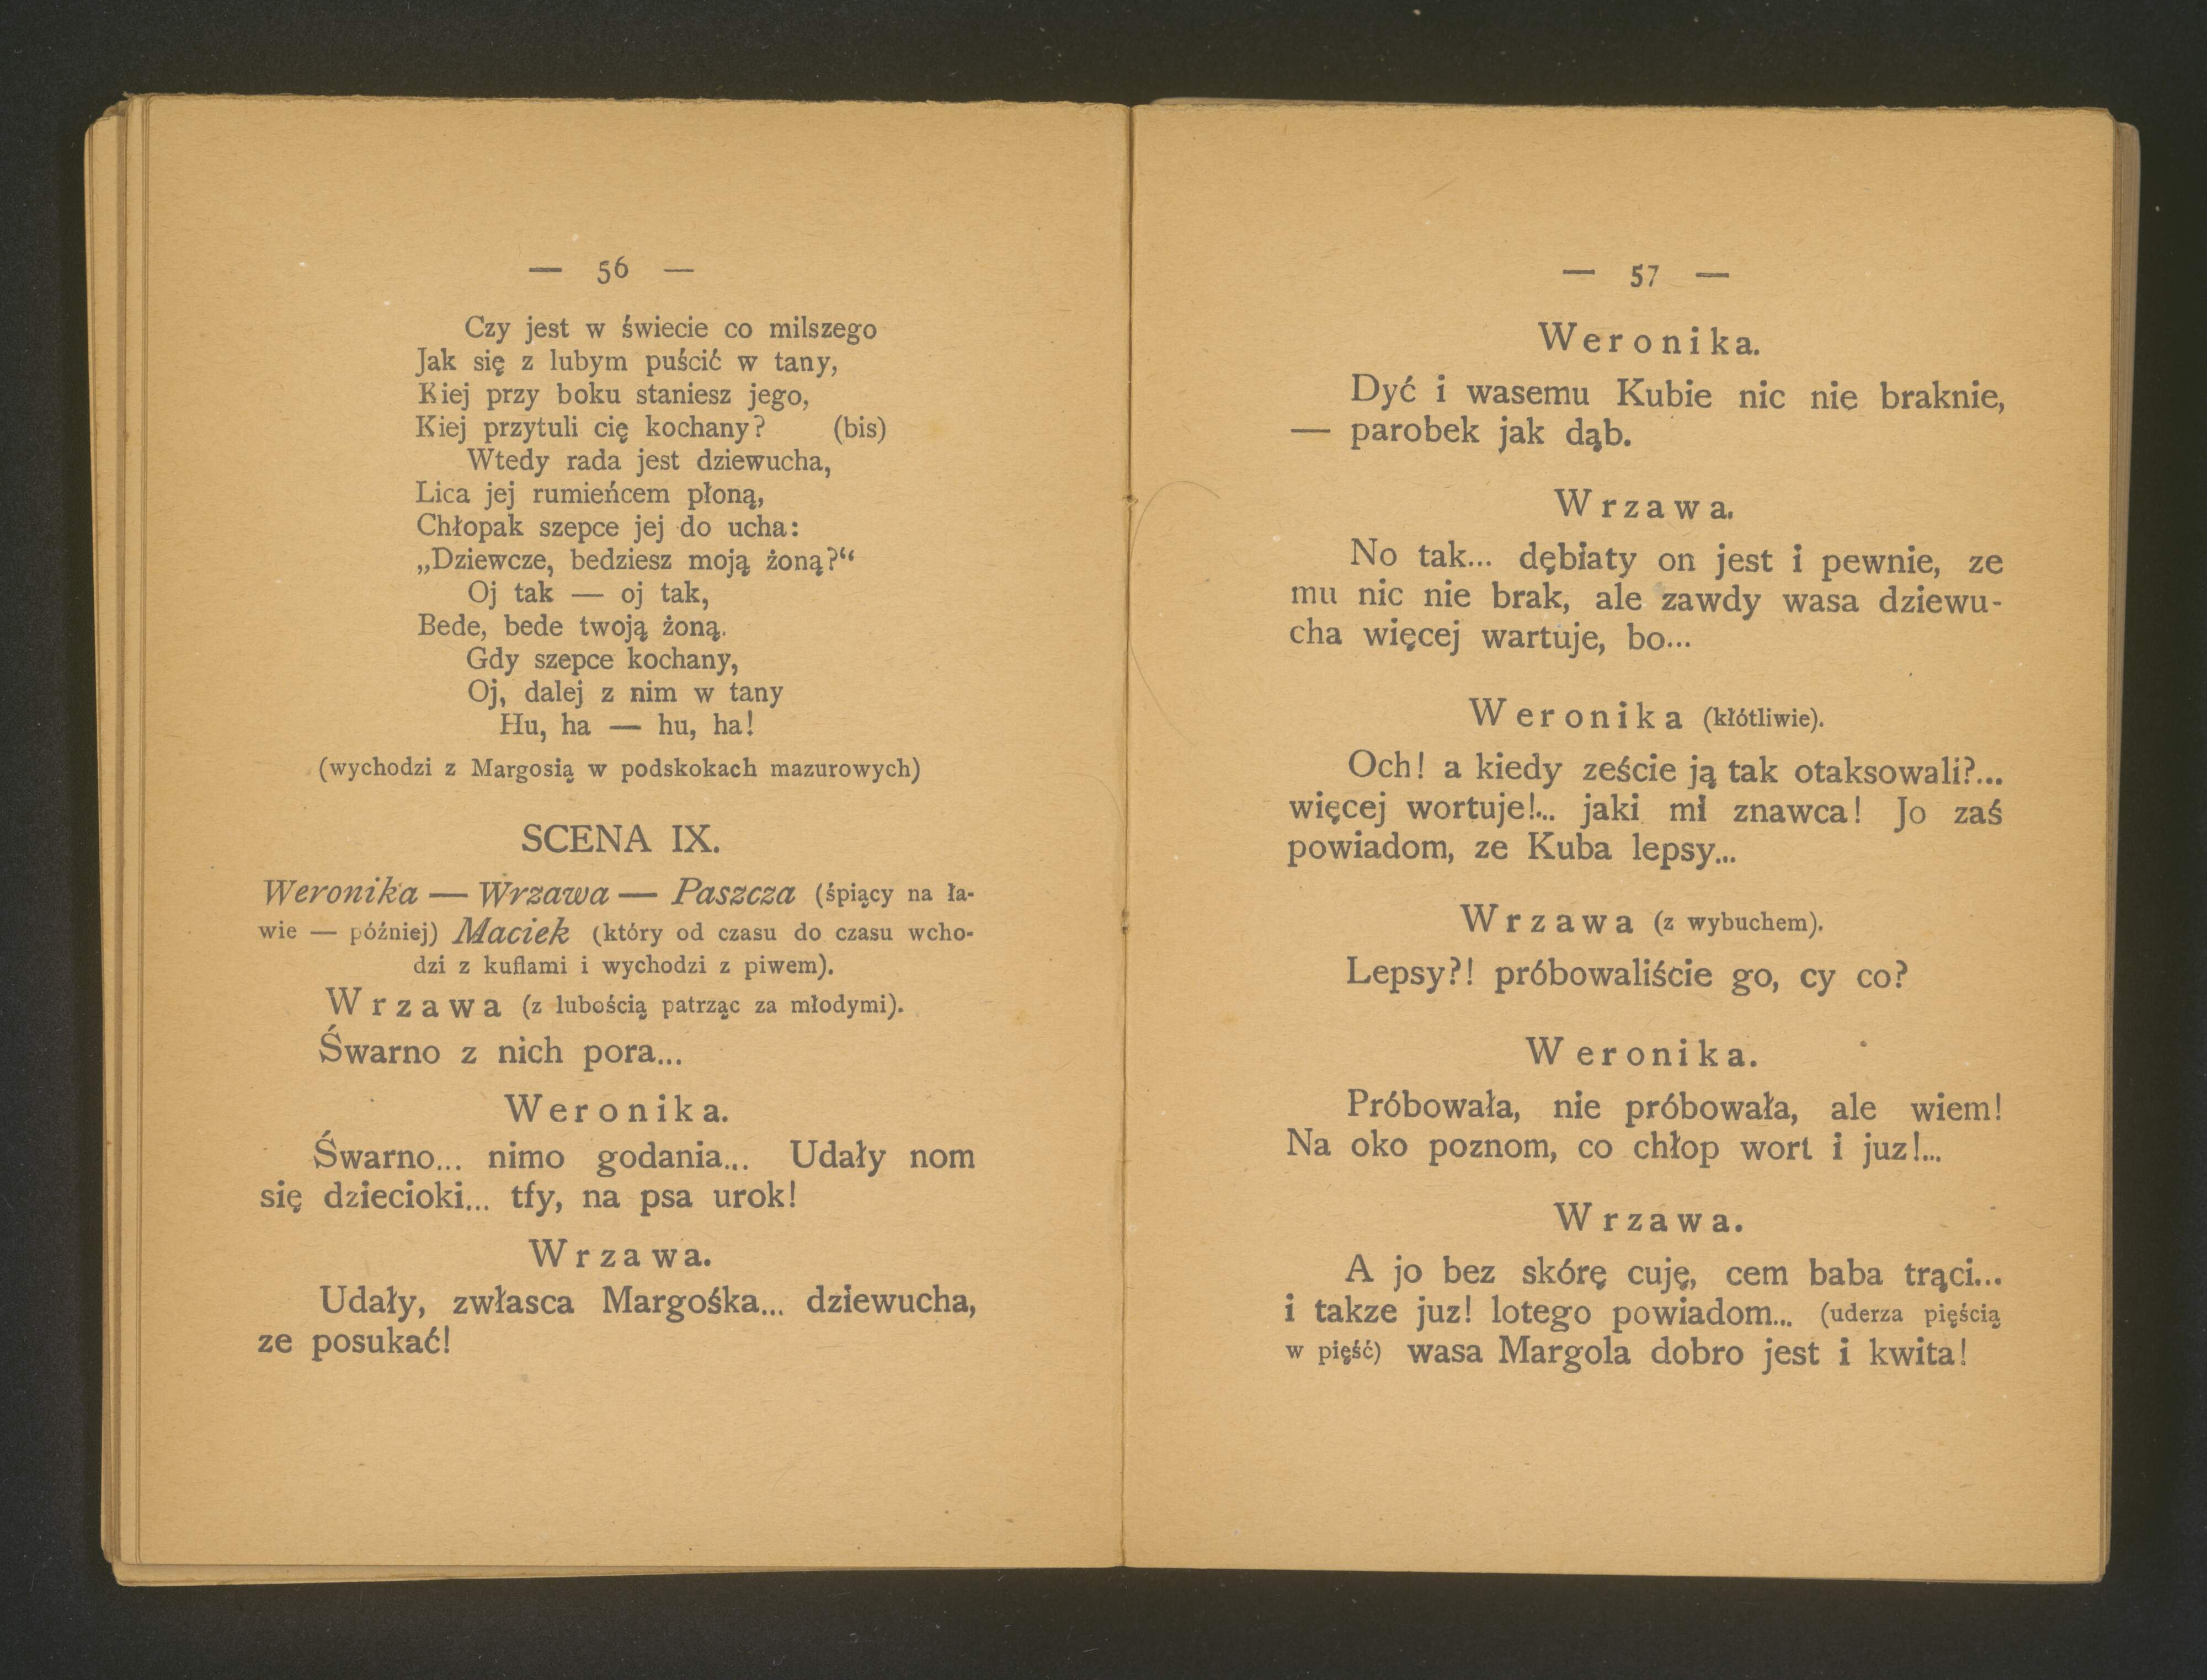 — 56 —
Czy jest w świecie co milszego
Jak się z lubym puścić w tany,
Kiej przy boku staniesz jego,
Kiej przytuli cię kochany? (bis)
Wtedy rada jest dziewucha,
Lica jej rumieńcem płoną,
Chłopak szepce jej do ucha:
„Dziewcze, bedziesz moją żoną?“
Oj tak — oj tak,
Bede, bede twoją żoną.
Gdy szepce kochany,
Oj, dalej z nim w tany
Hu, ha — hu, ha!
(wychodzi z Margosią w podskokach mazurowych)
SCENA IX.
Weronika — Wrzawa — Paszcza (śpiący na ła-
wie — później) Maciek (który od czasu do czasu wcho-
dzi z kuflami i wychodzi z piwem).
Wrzawa (z lubością patrząc za młodymi).
Śwarno z nich pora...
Weronika.
Śwarno... nimo godania... Udały nom
się dziecioki... tfy, na psa urok!
Wrzawa.
Udały, zwłasca Margośka... dziewucha,
ze posukać!
— 57 —
Weronika.
Dyć i wasemu Kubie nic nie braknie,
— parobek jak dąb.
Wrzawa.
No tak... dębiaty on jest i pewnie, ze
mu nic nie brak, ale zawdy wasa dziewu-
cha więcej wartuje, bo...
Weronika (kłótliwie).
Och! a kiedy zeście ją tak otaksowali?...
więcej wortuje!... jaki mi znawca! Jo zaś
powiadom, ze Kuba lepsy...
Wrzawa (z wybuchem).
Lepsy?! próbowaliście go, cy co?
Weronika.
Próbowała, nie próbowała, ale wiem!
Na oko poznom, co chłop wort i juz!...
Wrzawa.
A jo bez skórę cuję, cem baba trąci...
i takze juz! lotego powiadom... (uderza pięścią
w pięść) wasa Margola dobro jest i kwita!